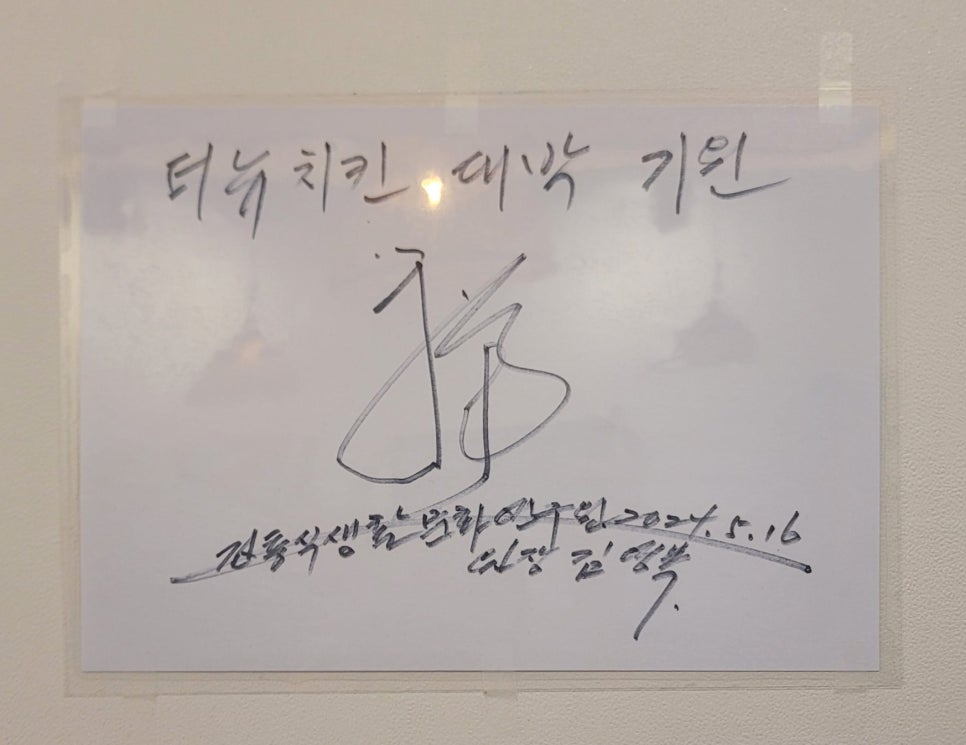 터뉴치킨 대박 기원
전통식생활문화연구원 2024.5.16
원장 김영복